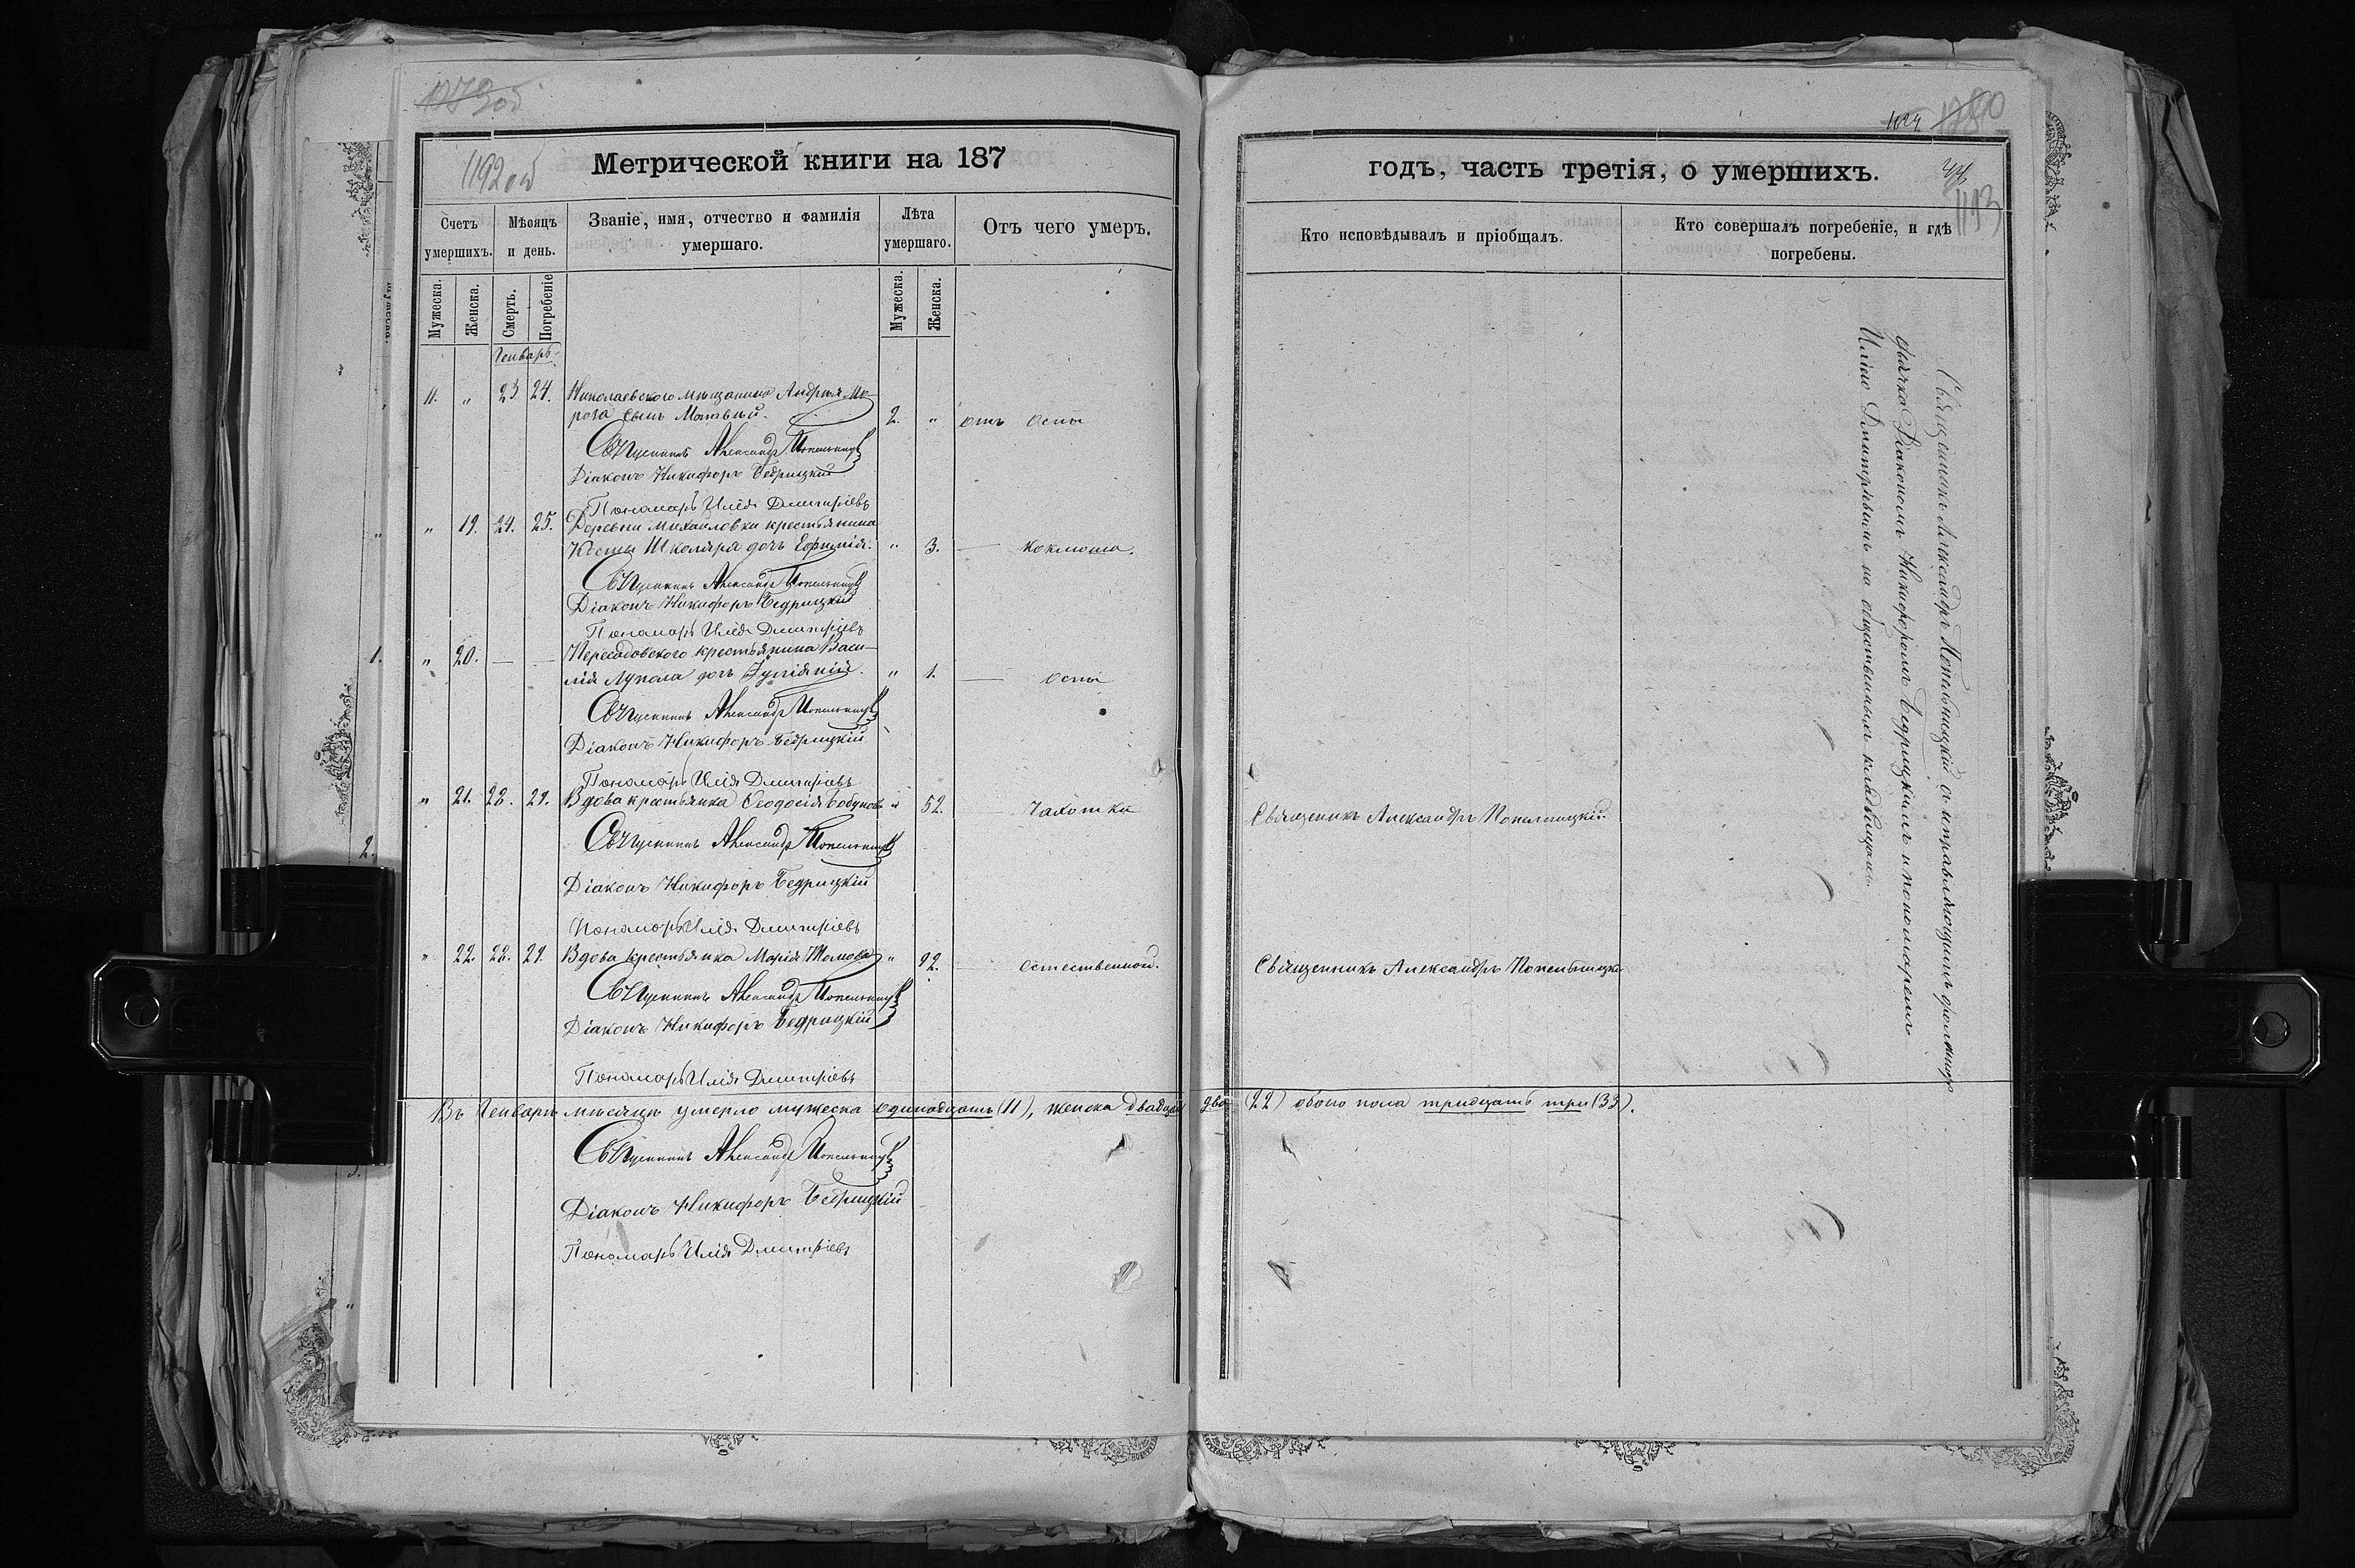 1192об
Метрической книги на 187
Счетъ умершихъ.
Мѣсяцъ и день.
Званіе, имя, отчество и фамилія умершаго.
Лѣта умершаго.
Отъ чего умеръ.
Мужеска.
Женска.
Смерть.
Погребеніе
Мужеска.
Женска.
Генварь
11. „ 23 24. Николаевского мѣщанина Андрея Мо-
роза сынъ Матвѣй. 2. „ отъ оспы
Священникъ Александръ Попельницкій
Діаконъ Никифоръ Бедрицкій
Пономарь Илія Димитріевъ
„ 19. 24. 25. Деревни Михайловки крестьянина
Школяра дочь Ефимія. „ 3. — коклюша.
Священникъ Александръ Попельницкій
Діаконъ Никифоръ Бедрицкій
Пономарь Илія Димитріевъ
„ 20. — — Пересадовского крестьянина Васи-
лія Лупола дочь „ 1. — оспы
Священникъ Александръ Попельницкій
Діаконъ Никифоръ Бедрицкій
Пономарь Илія Димитріевъ
„ 21. 28. 29. Вдова крестьянка Ѳеодосія „ 52. — чахотки
Священникъ Александръ Попельницкій
Діаконъ Никифоръ Бедрицкій
Пономарь Илія Димитріевъ
„ 22. 28. 29. Вдова крестьянка Марія „ 92. — естественной.
Священникъ Александръ Попельницкій
Діаконъ Никифоръ Бедрицкій
Пономарь Илія Димитріевъ
Въ Генварѣ мѣсяцѣ умерло мужеска одинадцать (11), женска двадцать два (22) обоего пола тридцать три (33).
Священникъ Александръ Попельницкій
Діаконъ Никифоръ Бедрицкій
Пономарь Илія Димитріевъ
годъ, часть третія, о умершихъ.
1193
Кто исповѣдывалъ и пріобщалъ.
Кто совершалъ погребеніе, и гдѣ
погребены.
Священникъ Александръ Попельницкій
Священникъ Александръ Попельницкій
Священникъ Александръ Попельницкій съ исправляющимъ должность
дьячка Діакономъ Никифоромъ Бедрицкимъ и пономаремъ
Иліею Димитріевымъ на общественномъ кладбищѣ.